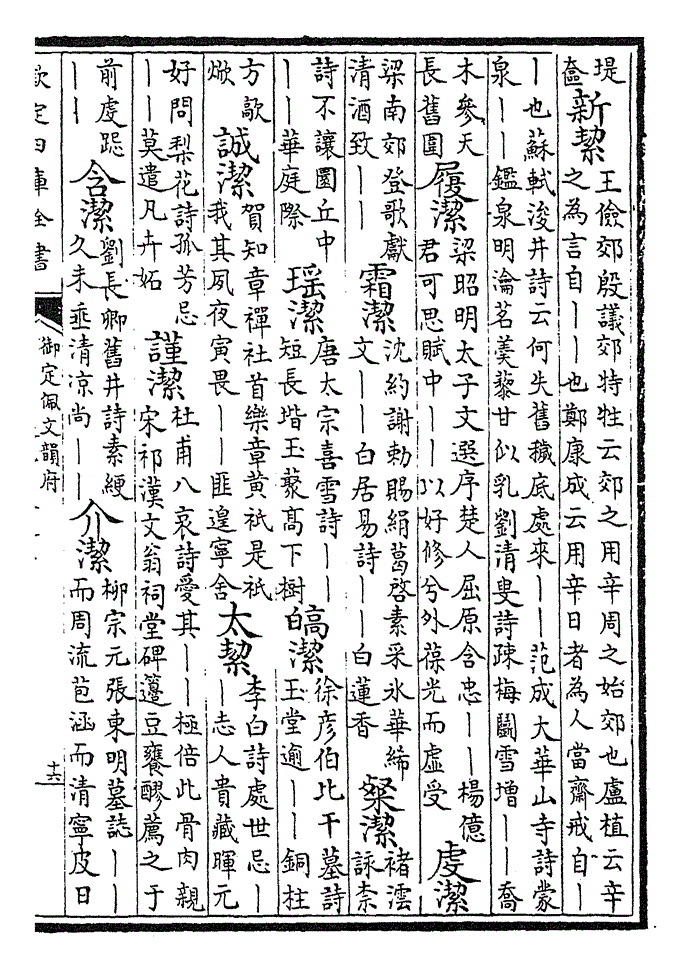 堤
新絜
王儉郊殷議郊特牲云郊之用辛周之始郊也盧植云辛
之為言自——也鄭康成云用辛日者為人當齋戒自—
—也蘇軾浚井詩云何失舊穢底處來——范成大華山寺詩蒙
泉——鑑泉明瀹茗羹藜甘似乳劉清叟詩疎梅鬭雪增——喬
木參天
長舊園
履潔
梁昭明太子文選序楚人屈原含忠——楊億
君可思賦中——以好修兮外葆光而虛受
虔潔
梁南郊登歌獻
清酒致——
霜潔
沈約謝勅賜絹葛啓素采氷華絺
文——白居易詩——白蓮香
粲潔
褚澐
詠柰
詩不讓圜丘中
——華庭際
瑶潔
唐太宗喜雪詩——
短長堦玉藂高下樹
皜潔
徐彥伯比干墓詩
玉堂逾——銅柱
方歊
焮
誠潔
賀知章禪社首樂章黃祇是祇
我其夙夜寅畏——匪遑寧舍
太絜
李白詩處世忌—
—志人貴藏暉元
好問梨花詩孤芳忌
——莫遣凡卉妬
謹潔
杜甫八哀詩愛其——極倍此骨肉親
宋祁漢文翁祠堂碑籩豆饔醪薦之于
前虔跽
——
含潔
劉長卿舊井詩素綆
久未垂清涼尚——
介潔
柳宗元張東明墓誌——
而周流苞涵而清寧皮日
欽定四庫全書
御定佩文韻府
十六